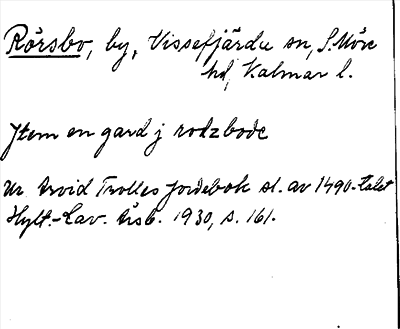 Rörsbo, by, Vissefjärda sn, S. Möre
hd, Kalmar l.
Jtem en gard j rodzbode
Ur Arvid Trolles jordebok sl. av 1490-talet
Hylt.-Cav. Årsb. 1930, s. 161.